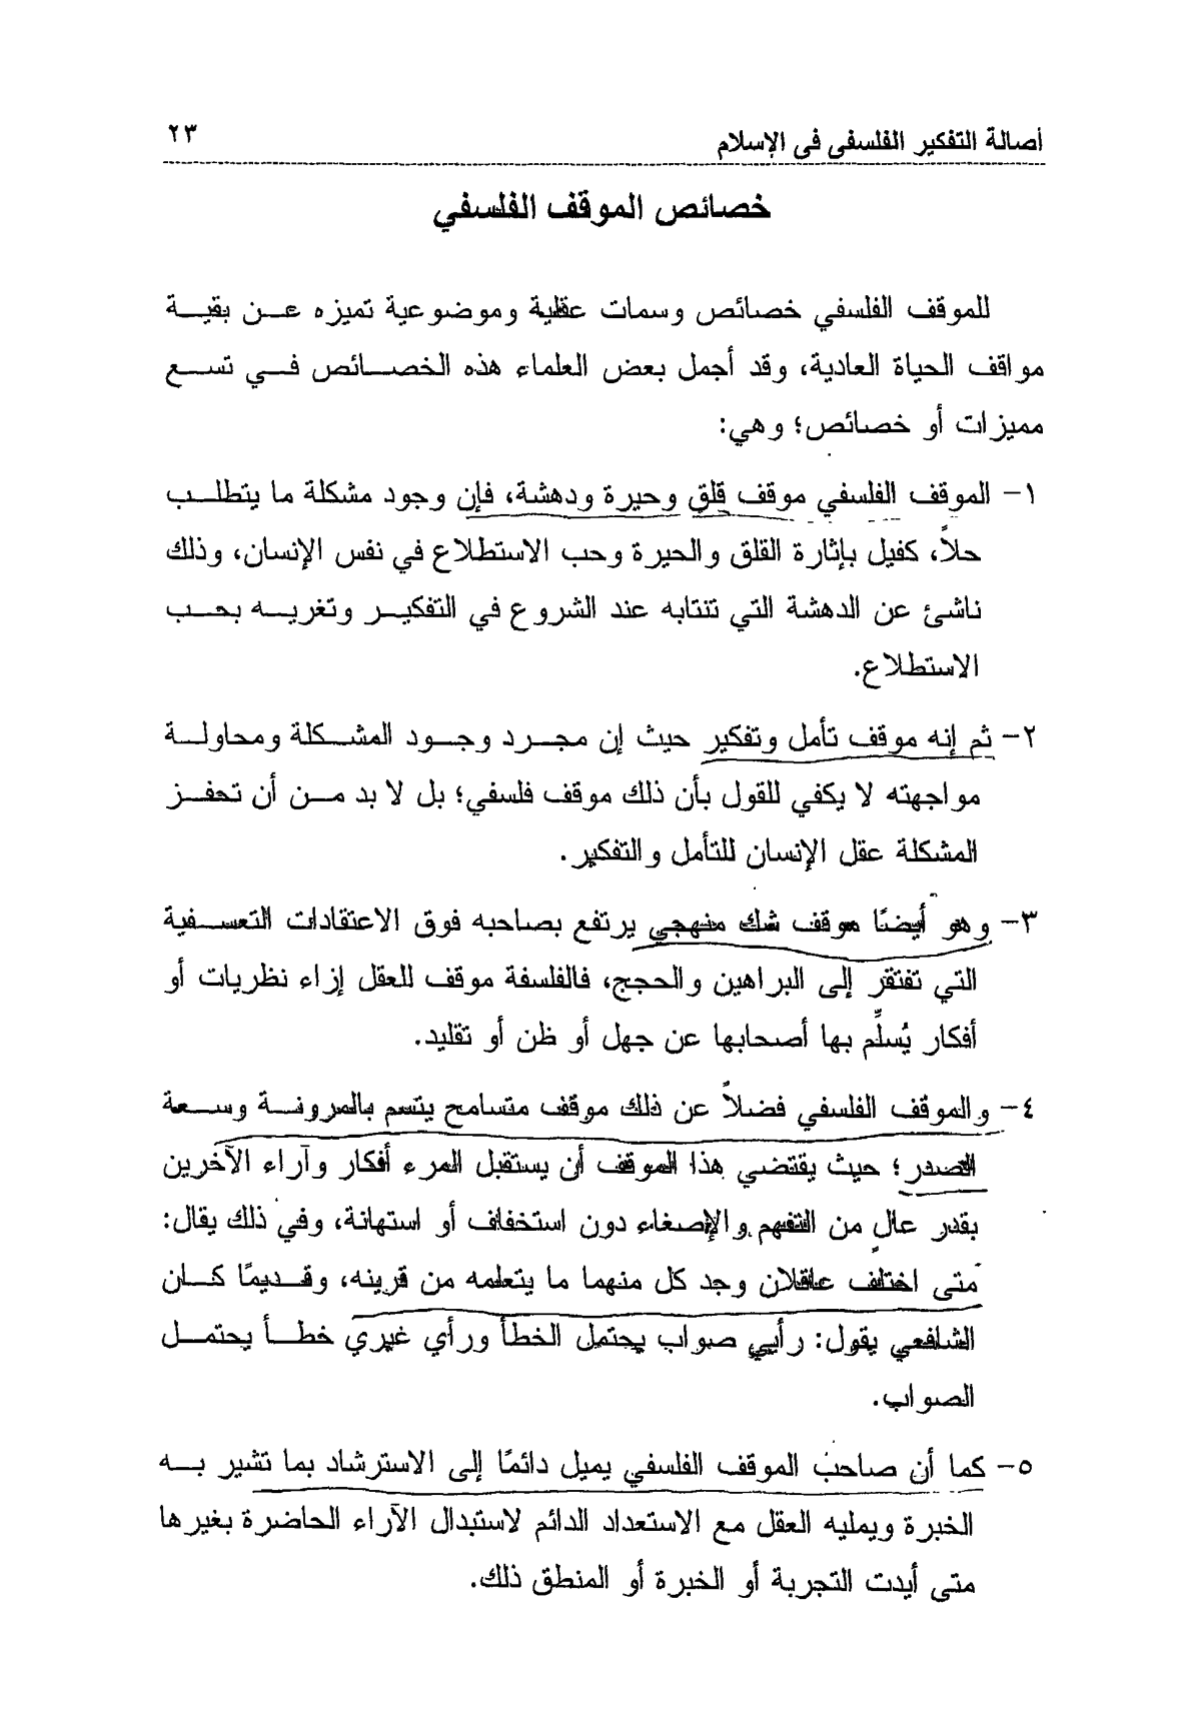 أصالة التفكير الفلسفى فى الإسلام
٢٣
خصائص الموقف الفلسفي
للموقف الفلسفي خصائص وسمات عقلية وموضوعية تميزه عن بقية
مواقف الحياة العادية، وقد أجمل بعض العلماء هذه الخصائص في تسع
مميزات أو خصائص؛ وهي:
١- الموقف الفلسفي موقف قلق وحيرة ودهشة، فإن وجود مشكلة ما يتطلب
حلاً، كفيل بإثارة القلق والحيرة وحب الاستطلاع في نفس الإنسان، وذلك
ناشئ عن الدهشة التي تنتابه عند الشروع في التفكير وتغريه بحب
الاستطلاع.
٢- ثم إنه موقف تأمل وتفكير حيث إن مجرد وجود المشكلة ومحاولة
مواجهته لا يكفي للقول بأن ذلك موقف فلسفي؛ بل لا بد من أن تحفز
المشكلة عقل الإنسان للتأمل والتفكير.
٣- وهو أيضًا موقف شك منهجي يرتفع بصاحبه فوق الاعتقادات التعسفية
التي تفتقر إلى البراهين والحجج، فالفلسفة موقف للعقل إزاء نظريات أو
أفكار يُسلِّم بها أصحابها عن جهل أو ظن أو تقليد.
٤- والموقف الفلسفي فضلاً عن ذلك موقف متسامح يتسم بالمرونة وسعة
الصدر؛ حيث يقتضي هذا الموقف أن يستقبل المرء أفكار وآراء الآخرين
بقدر عال من التفهم والإصغاء دون استخفاف أو استهانة، وفي ذلك يقال:
متى اختلف عاقلان وجد كل منهما ما يتعلمه من قرينه، وقديمًا كان
الشافعي يقول: رأيي صواب يحتمل الخطأ ورأي غيري خطأ يحتمل
الصواب.
٥- كما أن صاحب الموقف الفلسفي يميل دائمًا إلى الاسترشاد بما تشير به
الخبرة ويمليه العقل مع الاستعداد الدائم لاستبدال الآراء الحاضرة بغيرها
متى أيدت التجربة أو الخبرة أو المنطق ذلك.